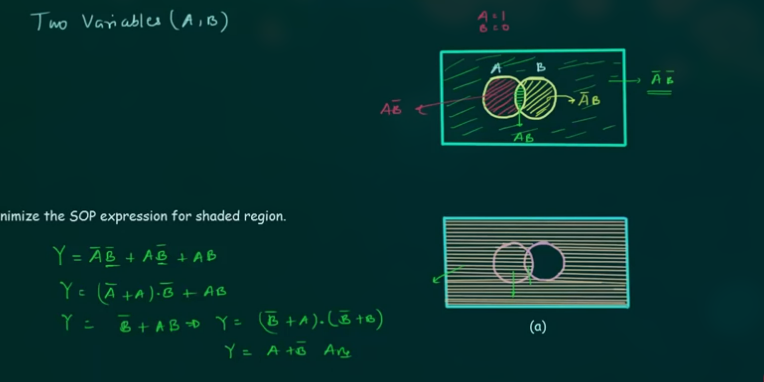 Two Variables (A,B)
A=1
B=0
A B
A̅ B̅
AB̅
A̅B
AB
nimize the SOP expression for shaded region.
Y = A̅B̅ + AB̅ + AB
Y = (A̅ + A)·B̅ + AB
Y = B̅ + AB ⇒ Y = (B̅ + A)·(B̅ + B)
Y = A + B̅ Ans
(a)